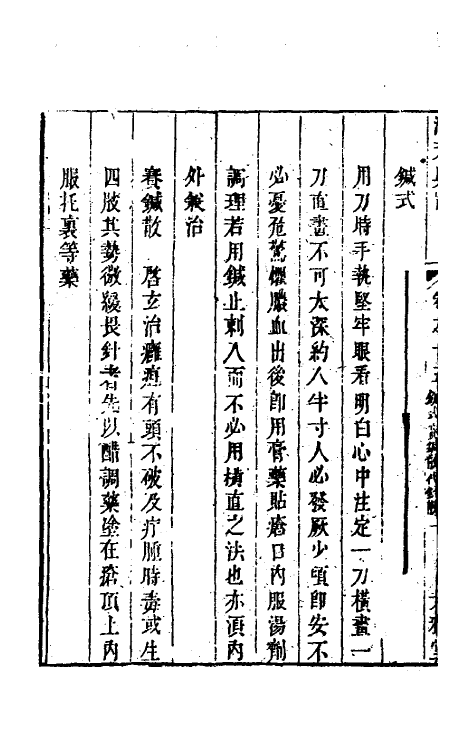 鍼式
用刀時手執堅牢眼看明白心中注定一刀橫畫一
刀直畫不可太深約入半寸人必發厥少頃即安不
必憂危驚懼膿血出後卽用膏藥貼瘡口內服湯劑
調理若用鍼止刺入而不必用橫直之法也亦須內
外兼治
賽鍼散　啓玄治癰疽有頭不破及疔腫時毒或生
四肢其勢微緩畏針者先以醋調藥塗在瘡頂上內
服托裏等藥